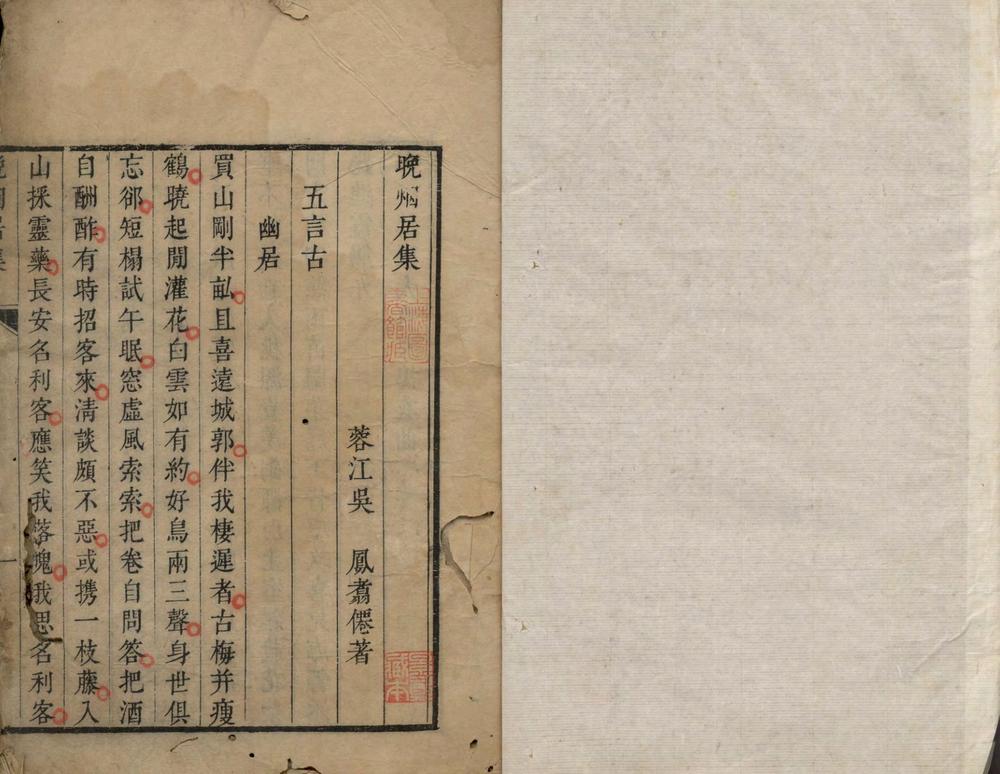 晚烟居集
蓉江吳　鳳翥僊著
五言古
幽居
買山剛半畝且喜遠城郭伴我棲遲者古梅并瘦
鶴曉起閒灌花白雲如有約好鳥兩三聲身世俱
忘郤短榻試午眠窓虛風索索把卷自問答把酒
自酬酢有時招客來淸談頗不惡或携一枝藤入
山採靈藥長安名利客應笑我落塊我思名利客